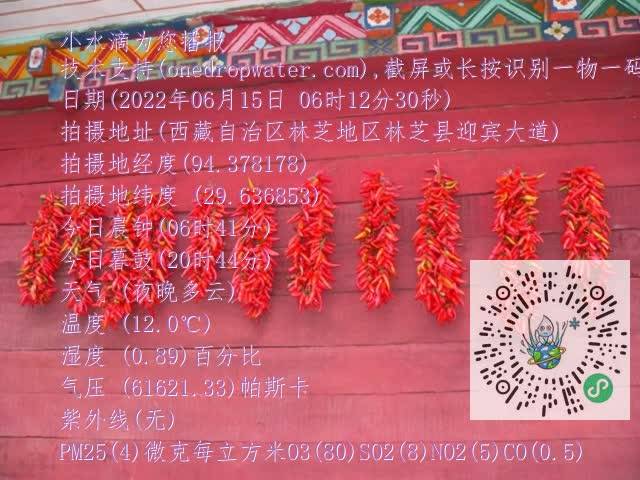 小水滴为您播报
技术支持(onedropwater.com),截屏或长按识别一物一码
日期(2022年06月15日 06时12分30秒)
拍摄地址(西藏自治区林芝地区林芝县迎宾大道)
拍摄地经度(94.378178)
拍摄地纬度 (29.636853)
今日晨钟(06时41分)
今日暮鼓(20时44分)
天气 (夜晚多云)
温度 (12.0℃)
湿度 (0.89)百分比
气压 (61621.33)帕斯卡
紫外线(无)
PM25(4)微克每立方米O3(80)SO2(8)NO2(5)CO(0.5)